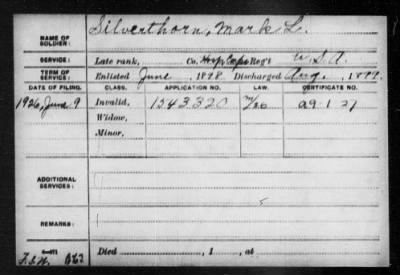 NAME OF SOLDIER: Silverthorn, Mark L.
SERVICE: Late rank, Co. Hosp Corps Reg't U.S.A.
TERM OF SERVICE: Enlisted June, 1898. Discharged Aug., 1899.
DATE OF FILING. CLASS. APPLICATION NO. LAW. CERTIFICATE NO.
1926, June 9 Invalid, 1543320 a9-1-27
Widow,
Minor,
ADDITIONAL SERVICES:
REMARKS:
Died , 1 , at